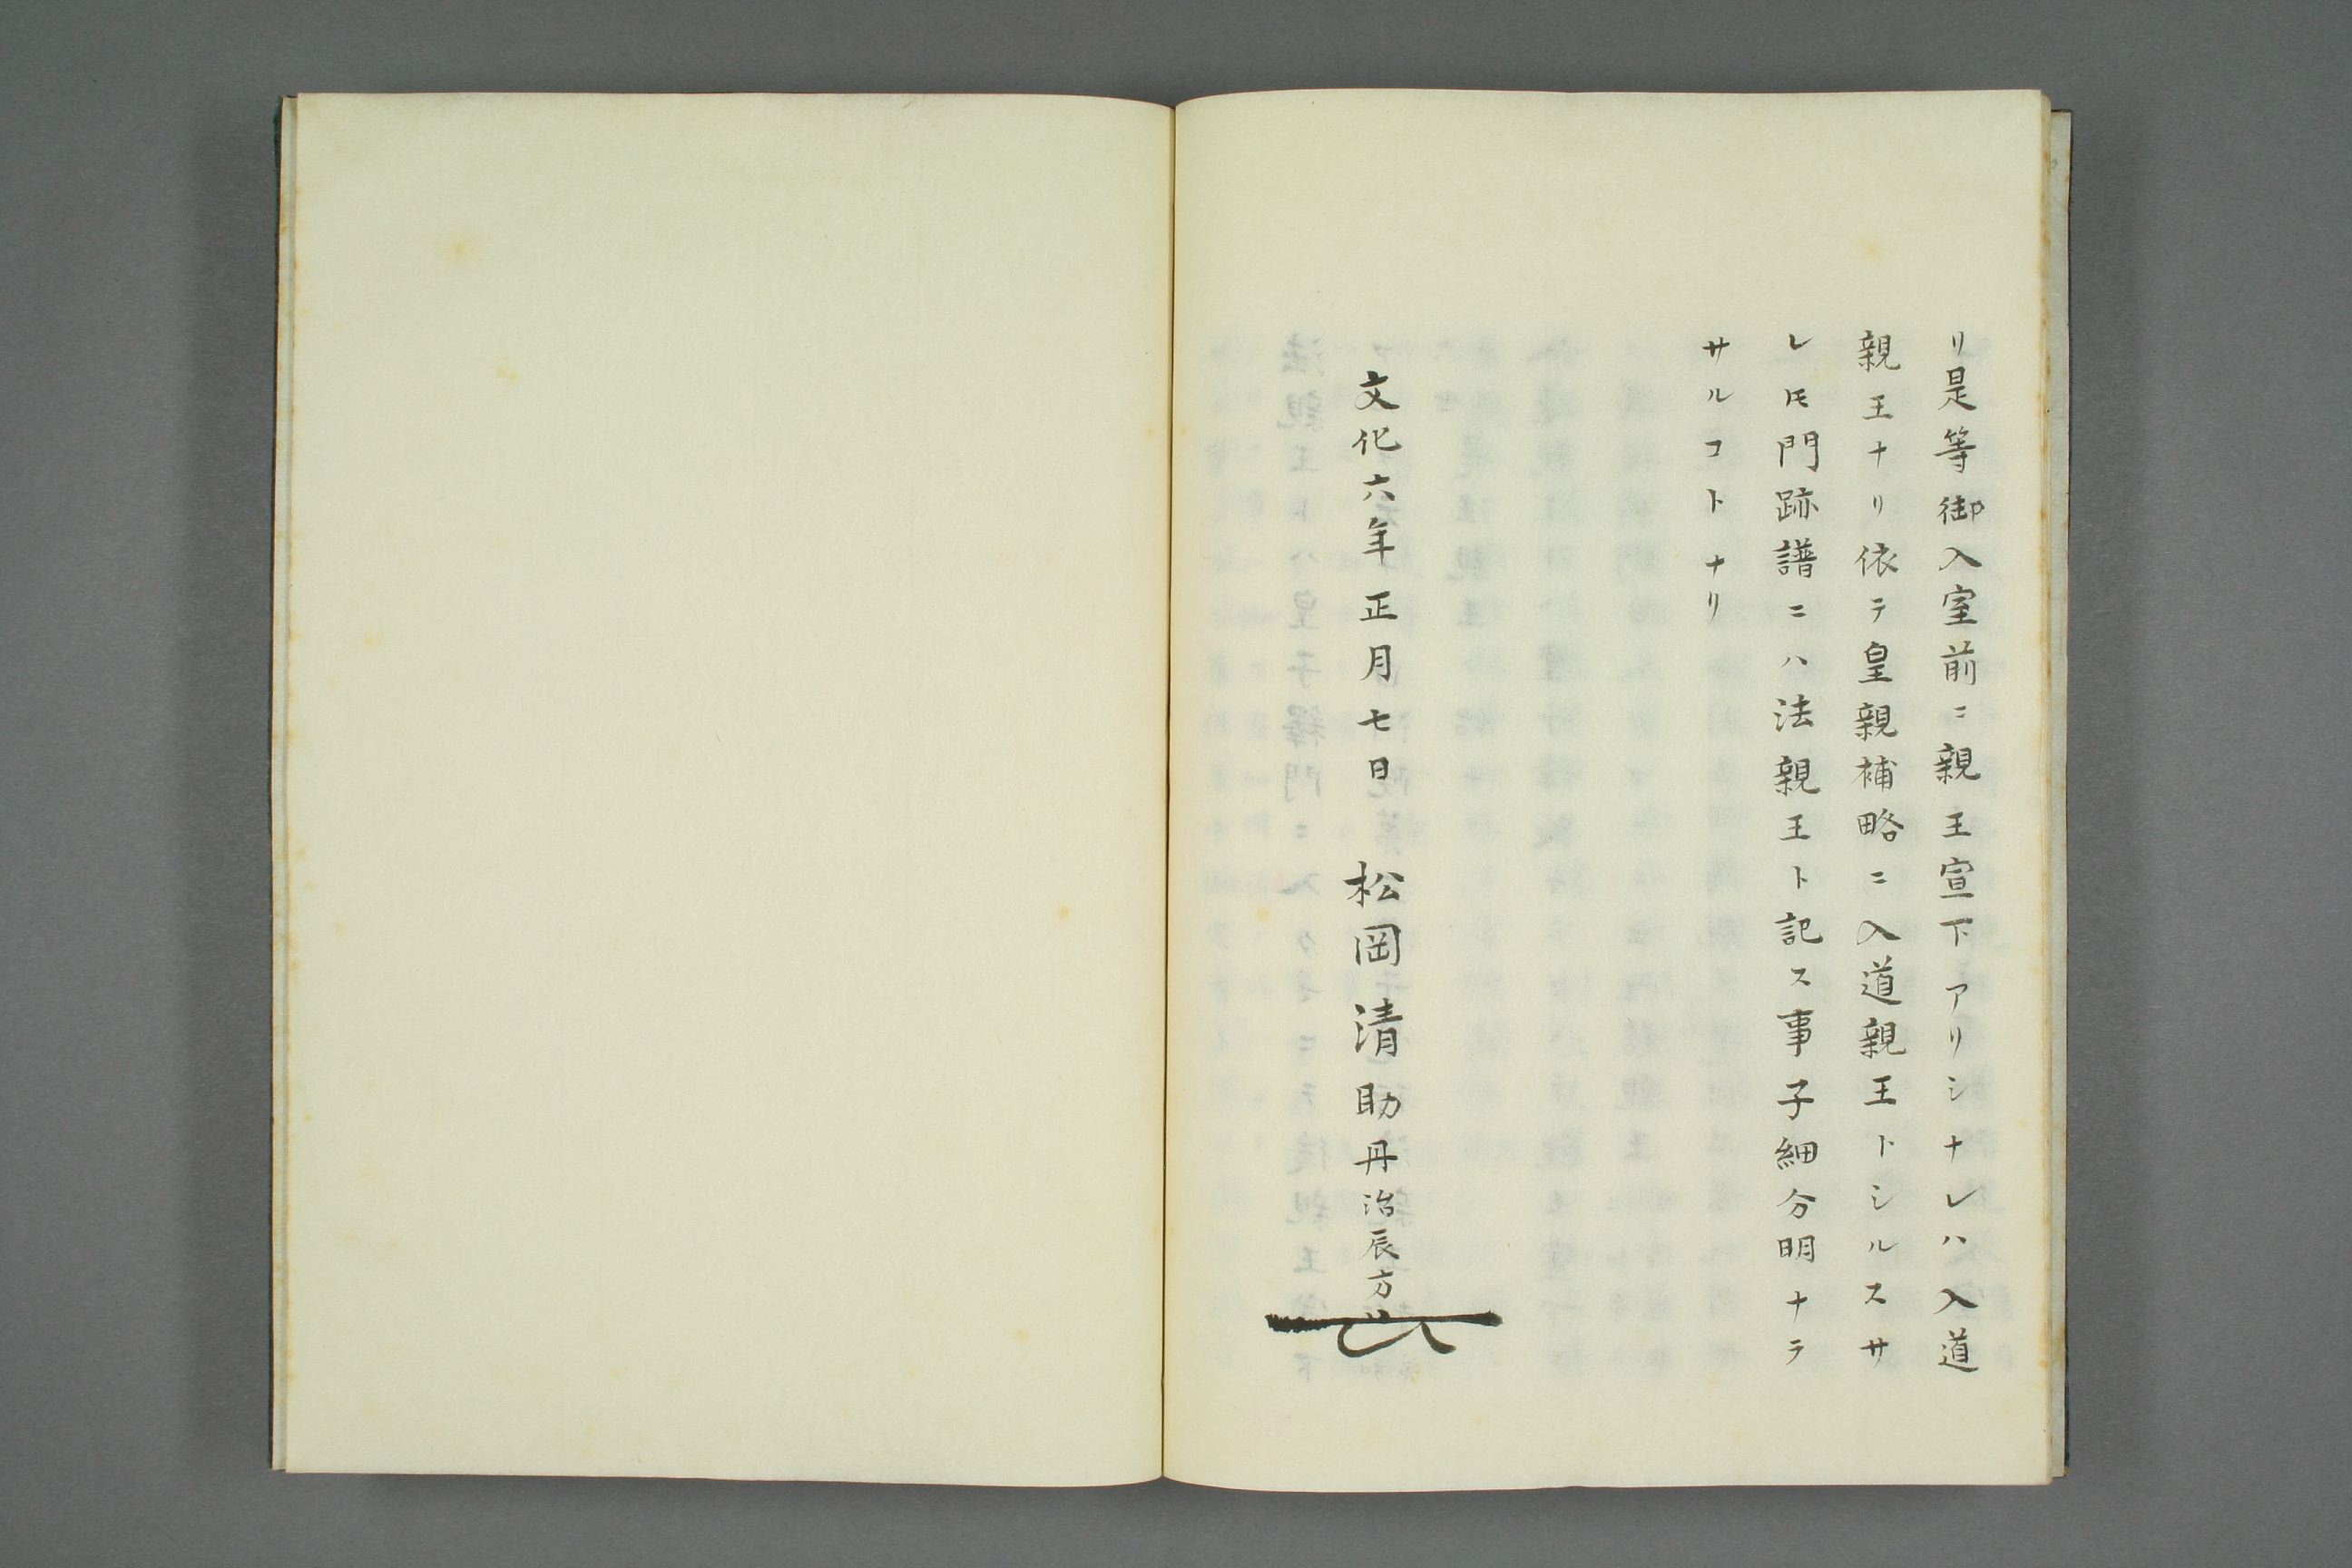 リ是等御入室前ニ親王宣下アリシナレハ入道
親王ナリ依テ皇親補略ニ入道親王トシルスサ
レ𪜈門跡譜ニハ法親王ト記ス事子細分明ナラ
サルコトナリ
文化六年正月七日 松岡清助丹治辰方